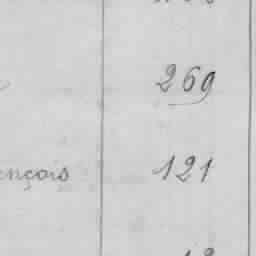 269
ençois 121